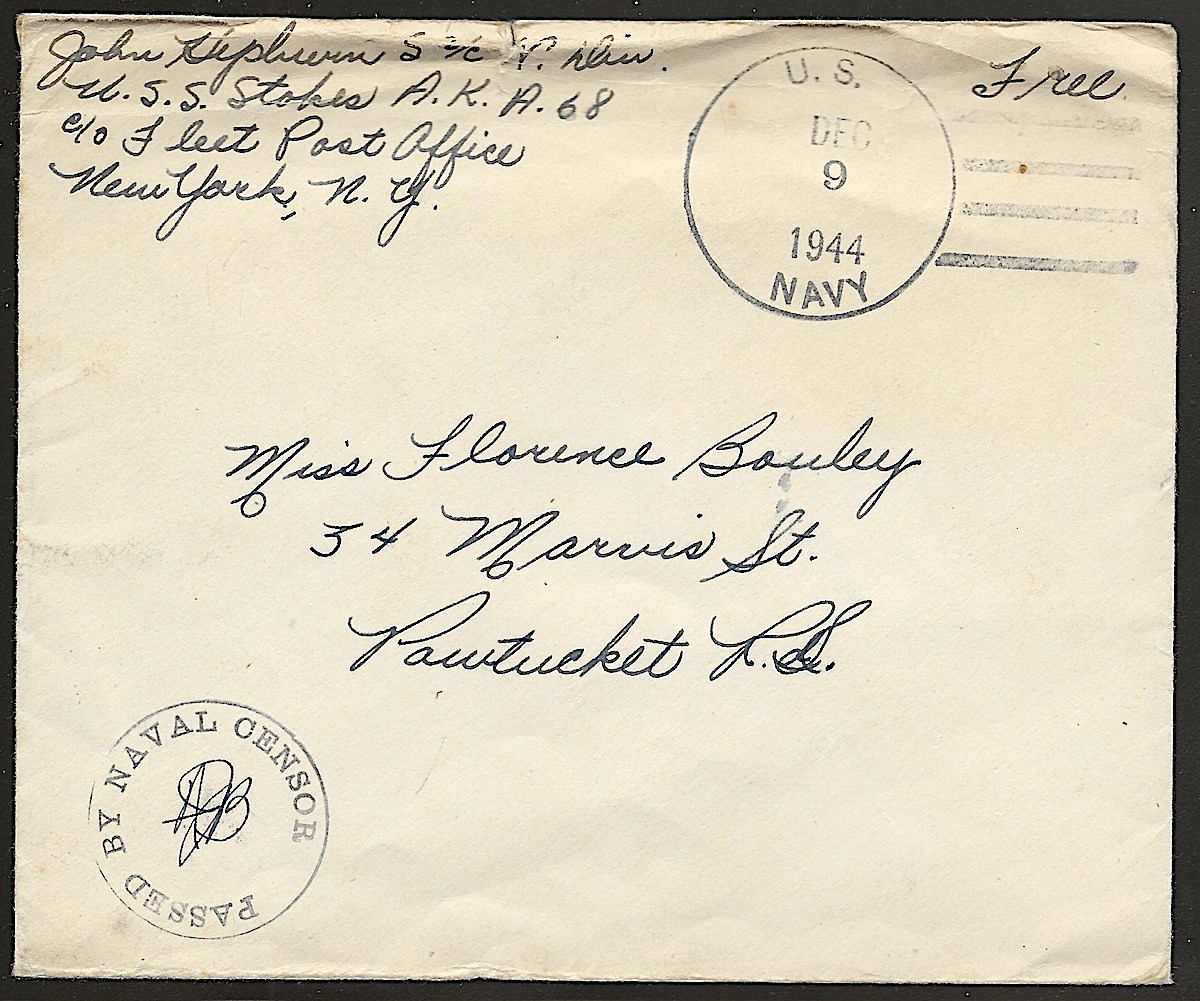 John Hepburn S 2/c V. Div.
U.S.S. Stokes A.K.A. 68
c/o Fleet Post Office
New York, N.Y.
U.S.
DEC
9
1944
NAVY
Free
Miss Florence Bouley
34 Marvis St.
Pawtucket R.I.
PASSED BY NAVAL CENSOR